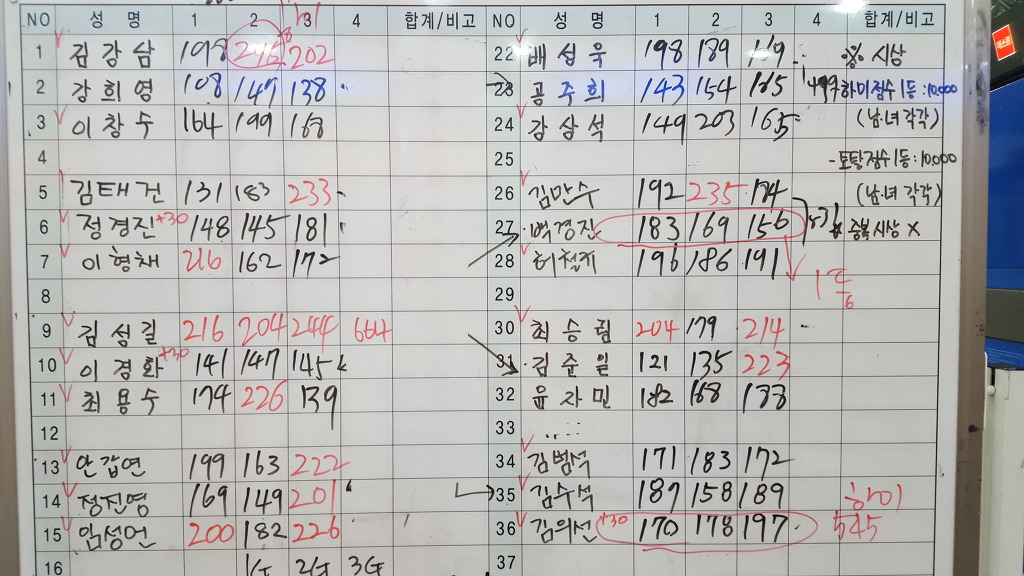 NO 성 명 1 2 3 4 합계/비고
1 김강삼 198 245 202
2 강희영 108 147 138
3 이창수 164 199 168
4
5 김태건 131 183 233
6 정경진 +30 148 145 181
7 이형채 216 162 172
8
9 김성길 216 204 244 664
10 이경화 +30 141 147 145
11 최용수 174 226 139
12
13 안갑연 199 163 222
14 정진영 169 149 201
15 임성언 200 182 226
16 1G 2G 3G
NO 성 명 1 2 3 4 합계/비고
22 배섭욱 198 189 119 시상
23 공주희 143 154 185 499 하이점수 1등:10,000
24 강상석 149 203 165 (남녀 각각)
25 - 토탈점수 1등:10,000
26 김만수 192 235 174 (남녀 각각)
27 백경진 183 169 156 중복시상 X
28 허철 196 186 191
29
30 최승림 204 179 214
31 김준일 121 135 223
32 윤자민 182 168 133
33
34 김범석 171 183 172
35 김수석 187 158 189 하이
36 김의선 +30 170 178 197 545
37